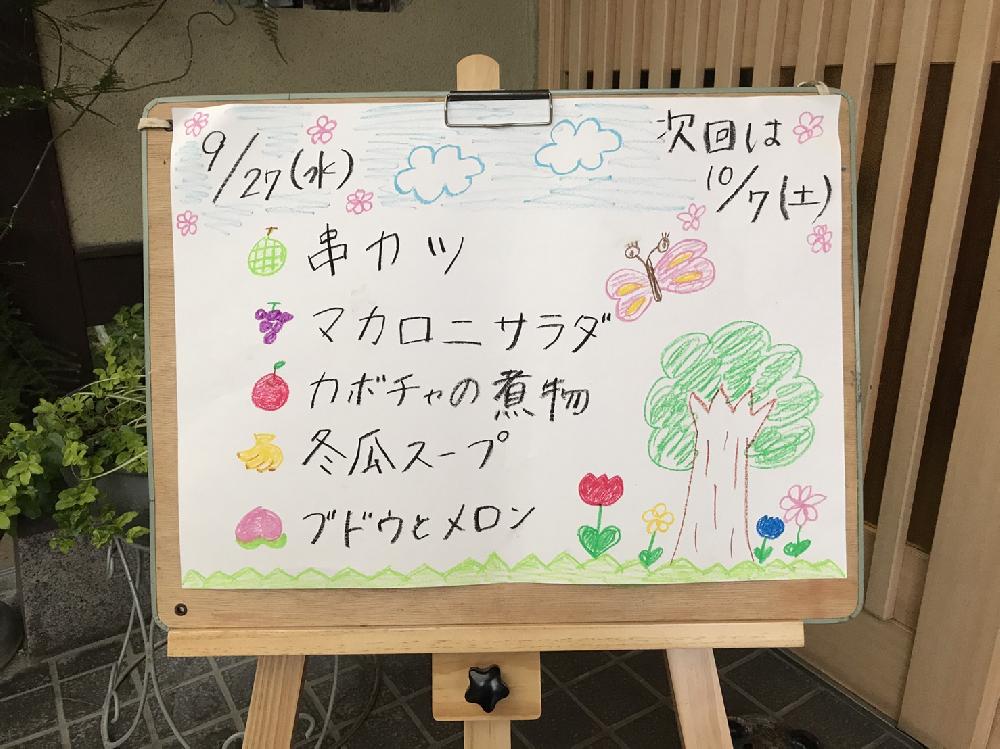 9/27(水)
次回は
10/7(土)
串カツ
マカロニサラダ
カボチャの煮物
冬瓜スープ
ブドウとメロン